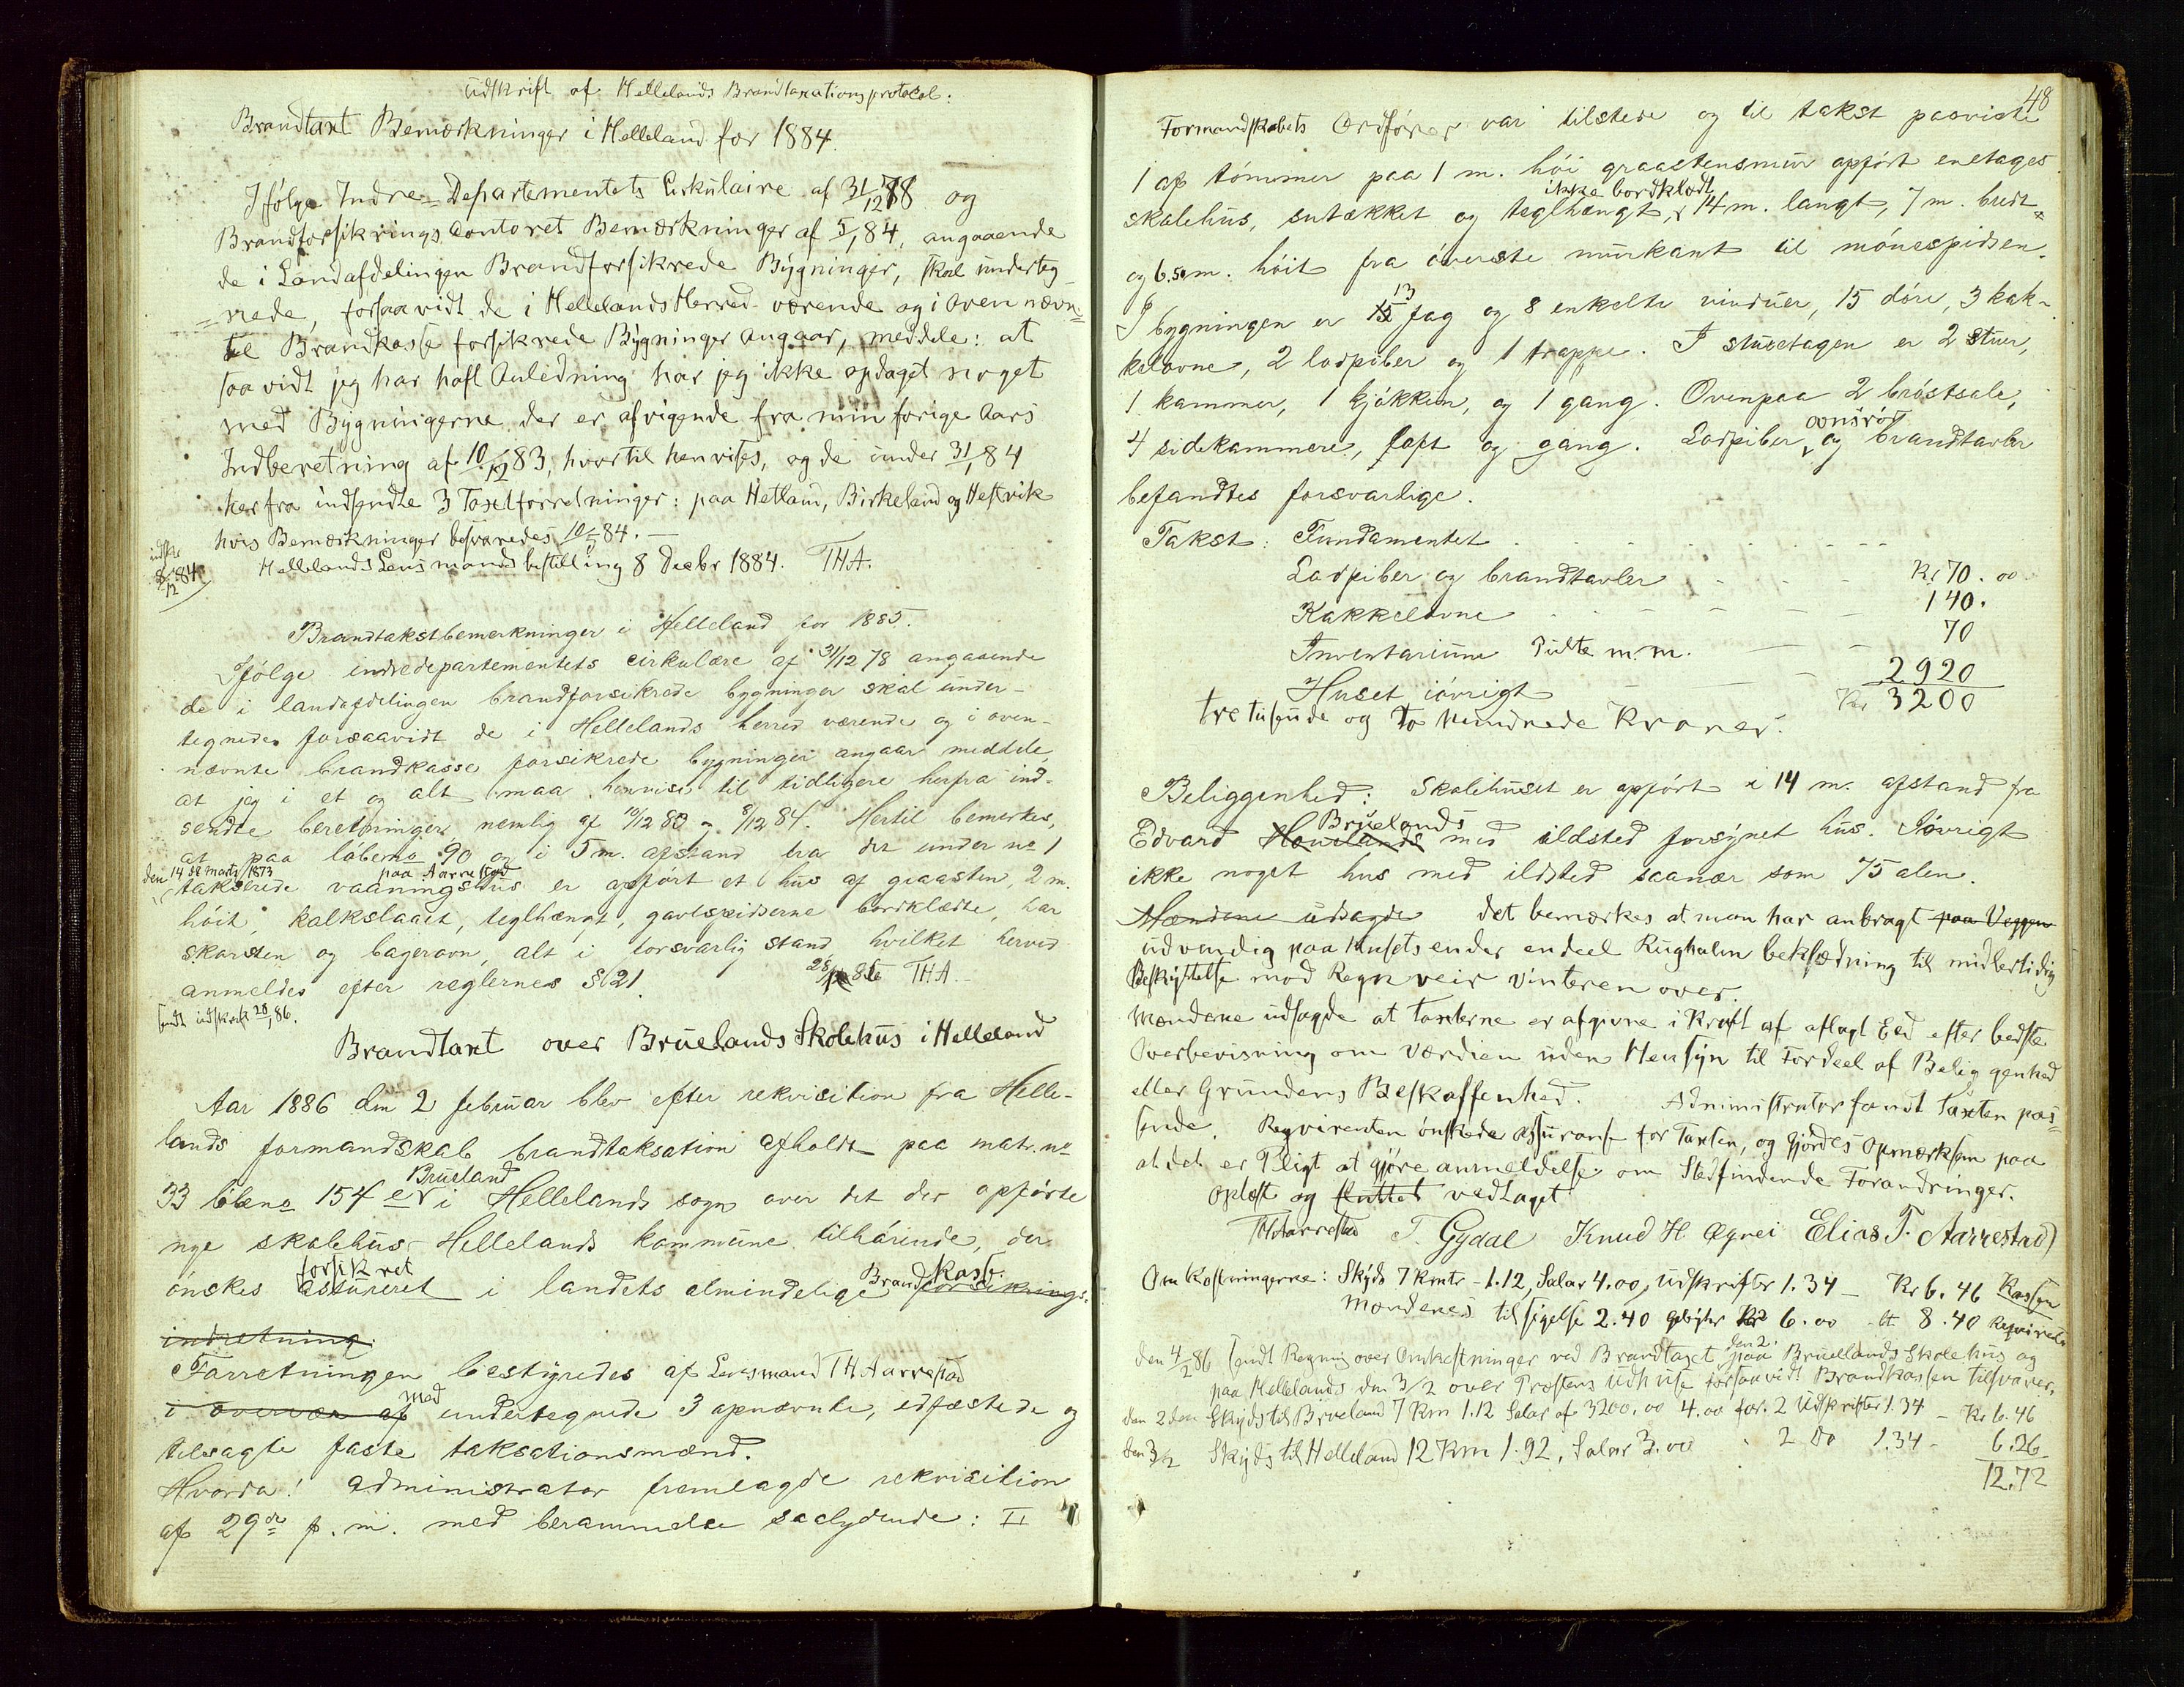 Udskrift af Hellelands Brandtaxationsprotocol:
Brandtaxt Bemærkninger i Helleland for 1884.
Ifølge Indre-Departementets Cirkulaire af 31/12 78 og
Brandforsikrings Contoret Bemærkninger af 5/1 84, angaaende
de i Landafdelingen Brandforsikrede Bygninger, skal underteg-
=nede, forsaavidt de i Hellelands Herred værende og i Oven nævn=
te Brandkasse forsikrede Bygninger angaar, meddele: at
saavidt jeg har haft Anledning har jeg ikke opdaget noget
med Bygningerne der er afvigende fra min forige Aars
Indberetning af 10/12 83, hvortil henvises, og de under 31/1 84
herfra indsendte 3 Taxtforretninger: paa Hetland, Birkeland og Hestvik
hvis Bemærkninger besvaredes 10/5 84. —
indskr 8/12 84
Hellelands Lensmandsbestilling 8 Decbr 1884. THA.
Brandtakstbemerkninger i Helleland for 1885.
Ifølge indredepartementets cirkulære af 31/12 78 angaaende
de i landafdelingen brandforsikrede bygninger skal under-
tegnede, forsaavidt de i Hellelands herred værende og i oven-
nævnte brandkasse forsikrede bygninger angaar meddele,
at jeg i et og alt maa henvise til tidligere herfra ind-
sendte beretninger nemlig af 10/12 83 og 8/12 84. Hertil bemerkes,
at paa løbeno 90 og i 5 m. afstand fra det under no 1
den 14 de marts 1873 paa Aarrestad
takserede vaaningshus er opført et hus af graasten, 2 m.
høit, kalkslaaet, teglhængt, gavlspidserne bordklædte, har
skorsten og bagerovn, alt i forsvarlig stand hvilket herved
anmeldes efter reglernes § 21. 28/1 86 THA.
sendt udskrift 28/1 86.
Brandtaxt over Bruelands Skolehus i Helleland
Aar 1886 den 2 februar blev efter rekvisition fra Helle-
lands formandskab brandtaksation afholdt paa matr. no
Brueland
33 løbeno 154 er i Hellelands sogn over det der opførte
nye skolehus Hellelands kommune tilhørende, der
forsikret Brandkasse
ønskes assureret i landets almindelige forsiknings-
indretning.
Forretningen bestyredes af Lensmand TH Aarrestad
med
i overvær af undertegnede 3 opnævnte, edfæstede og
tilsagte faste taksationsmænd.
Hvorda! Administrator fremlagde rekvisition
af 29de f. m. med berammelse saalydende: II
48
Formandskabets Ordfører var tilstede og til takst paaviste
1 af tømmer paa 1 m. høi graastensmur opført enetages
ikke bordklædt
skolehus, sutækket og teglhængt, 14 m. langt, 7 m. bredt
og 6.50 m. høit fra øverste murkant til mønespidsen.
13
I bygningen er 15 fag og 8 enkelte vinduer, 15 døre, 3 kak-
kelovne, 2 ladpiber og 1 trappe. I stueetagen er 2 stuer,
1 kammer, 1 kjøkken, og 1 gang. Ovenpaa 2 brøstsale,
ovnsrør
4 sidekammere, loft og gang. Ladpiber og brandtavler
befandtes forsvarlige.
Takst: Fundamentet . . . . . .
Ladpiber og brandtavler - - - Kr 70.00
Kakkelovne - - - 140.
Inventarium Pulte m.m. - - 70
Huset iøvrigt - - 2920
Kr 3200
tretusinde og to Hundrede Kroner.
Beliggenhed: Skolehuset er opført i 14 m. afstand fra
Bruelands
Edvard Hovelands med ildsted forsynet hus. Iøvrigt
ikke noget hus med ildsted saanær som 75 alen.
Mændene udsagde det bemærkes at man har anbragt paa Veggen
udvendig paa Husets ender endeel Rughalm beklædning til midlertidig
Beskyttelse mod Regnveir Vinteren over.
Mændene udsagde at Taxterne er afgivne i Kraft af aflagt Eed efter bedste
Overbevisning om Værdien uden Hensyn til Fordeel af Beliggenhed
eller Grundens Beskaffenhed. Administrator fandt Taxten pas=
sende. Reqvirenten ønskede Assuranse for Taxten, og gjordes Opmærksom paa
at det er Pligt at gjøre anmeldelse om Stedfindende Forandringer.
Oplæst og sluttet vedtaget.
THAarrestad T. Gydal Knud H Egnei Elias T. Aarrestad
Omkostningerne: Skyds 7 kmtr - 1.12, Salar 4.00, Udskrifter 1.34 — Kr 6.46 Kassen
Mændenes tilsigelse 2.40 gebyhr Kr 6.00 - 8.40 Reqvirenten
den 2
den 4/2 86 sendt Regning over Omkostninger ved Brandtaxet paa Bruelands Skolehus og
paa Hellelands den 3/2 over Præstens Udhuse forsaavidt Brandkassen tilsvarer.
den 2 den Skyds til Brueland 7 Km 1.12 Salar af 3200.00 4.00 for 2 Udskrifter 1.34 — Kr 6.46
den 3/2 Skyds til Helleland 12 Km 1.92, Salær 3.00 " 2 Do 1.34 - 6.26
12.72